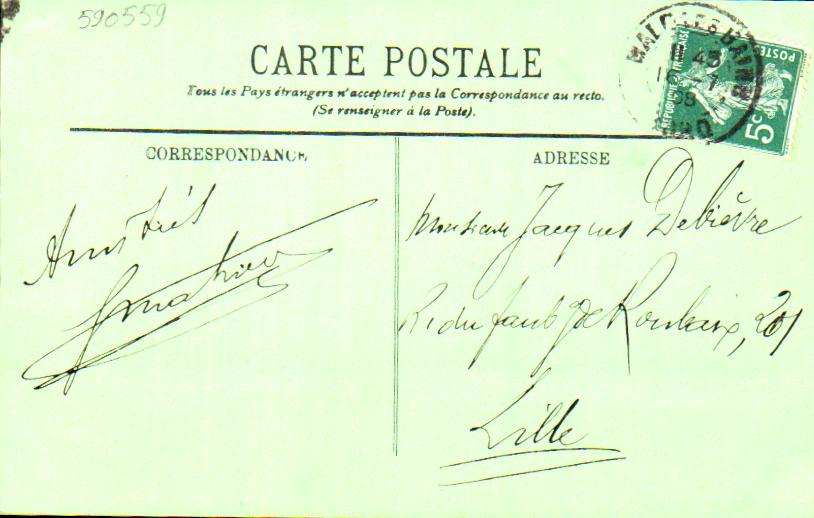 590559
CARTE POSTALE
Tous les Pays étrangers n'acceptent pas la Correspondance au recto.
(Se renseigner à la Poste).
CORRESPONDANCE
ADRESSE
MALO LES BAINS
45
18 7
08
POSTES
RÉPUBLIQUE FRANÇAISE
5c
Amitiés
Monsieur Jacques Debièvre
R. du faubg de Roubaix, 201
Lille